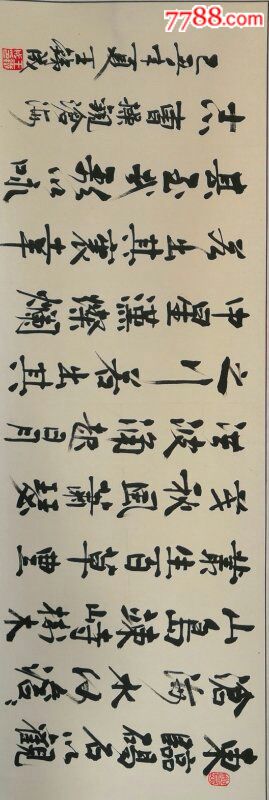 東臨碣石以觀
滄海水何澹〻
山島竦峙樹木
叢生百草豐
茂秋風蕭瑟
洪波涌起日月
之行若出其
中星漢燦爛
若出其裏幸
甚至哉歌以咏
志曹操觀滄海
己丑年夏王鐵成
7788.com